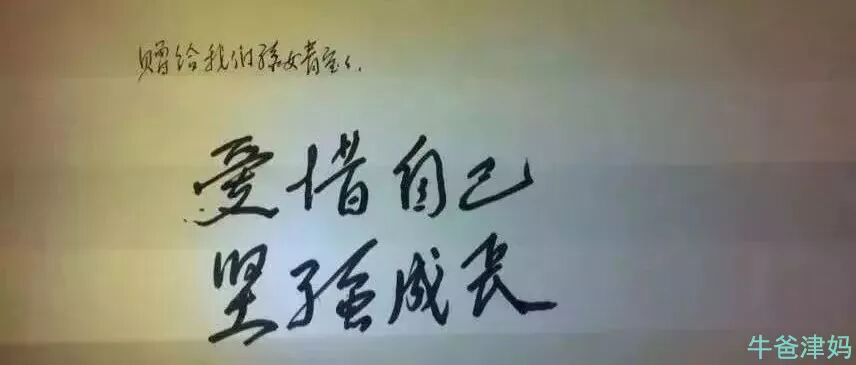 赠给我们孙女青宝:
爱惜自己
坚强成长
牛爸津妈